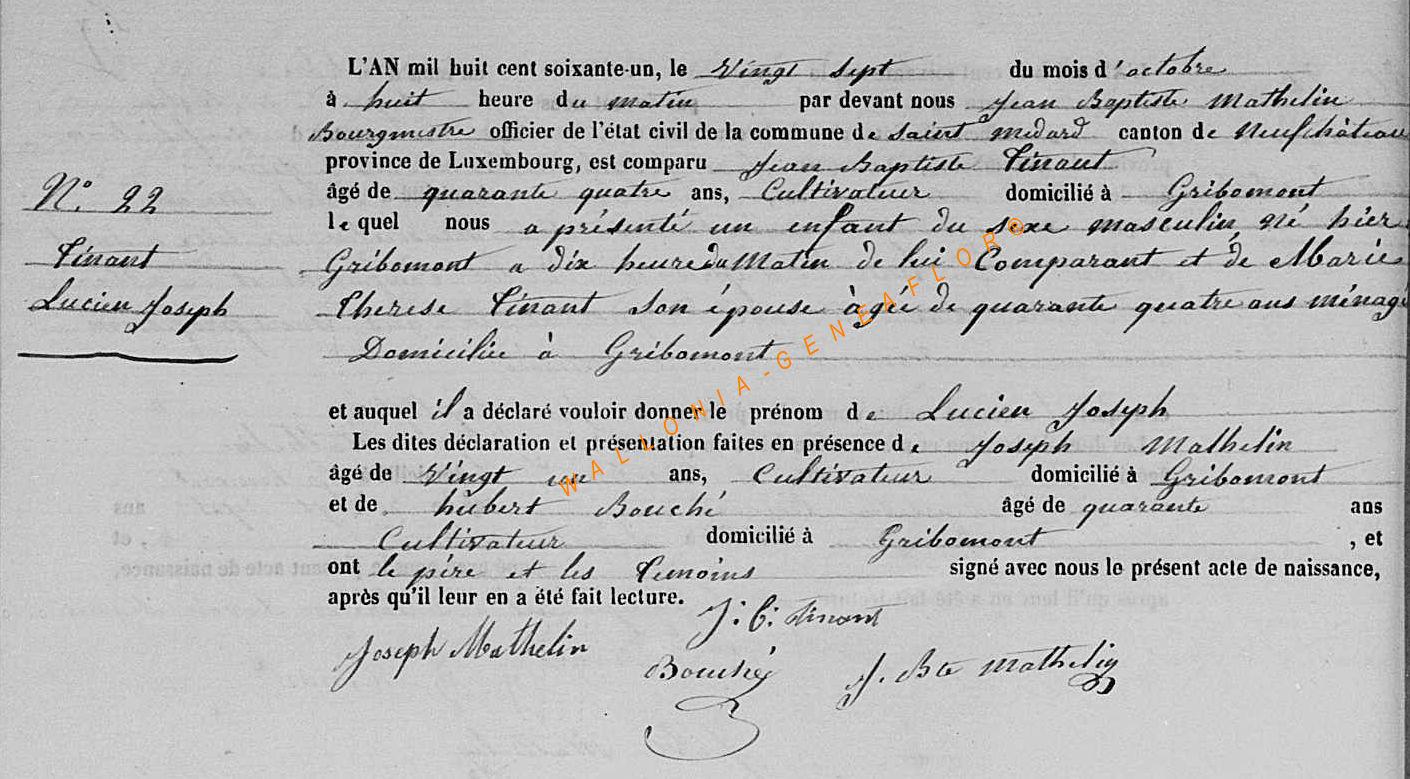 L'AN mil huit cent soixante-un, le Vingt Sept du mois d'octobre
à huit heure du matin par devant nous Jean Baptiste Mathelin
Bourgmestre officier de l'état civil de la commune de Saint Médard canton de Neufchâteau
province de Luxembourg, est comparu Jean Baptiste Tinant
N.° 22
âgé de quarante quatre ans, Cultivateur domicilié à Gribomont
le quel nous a présenté un enfant du sexe masculin, né hier
Tinant
Gribomont a dix heure du Matin de lui Comparant et de Marie
Lucien Joseph
Therese Tinant son épouse àgée de quarante quatre ans ménagè
Domiciliée à Gribomont
et auquel il a déclaré vouloir donner le prénom de Lucien Joseph
Les dites déclaration et présentation faites en présence de Joseph Mathelin
âgé de Vingt un ans, Cultivateur domicilié à Gribomont
et de hubert Bouché âgé de quarante ans
Cultivateur domicilié à Gribomont , et
ont le père et les Temoins signé avec nous le présent acte de naissance,
après qu'il leur en a été fait lecture.
J: B: Tinant
Joseph Mathelin
Bouché
J. Bte Mathelin
WALLONIA-GENEAFLOR©